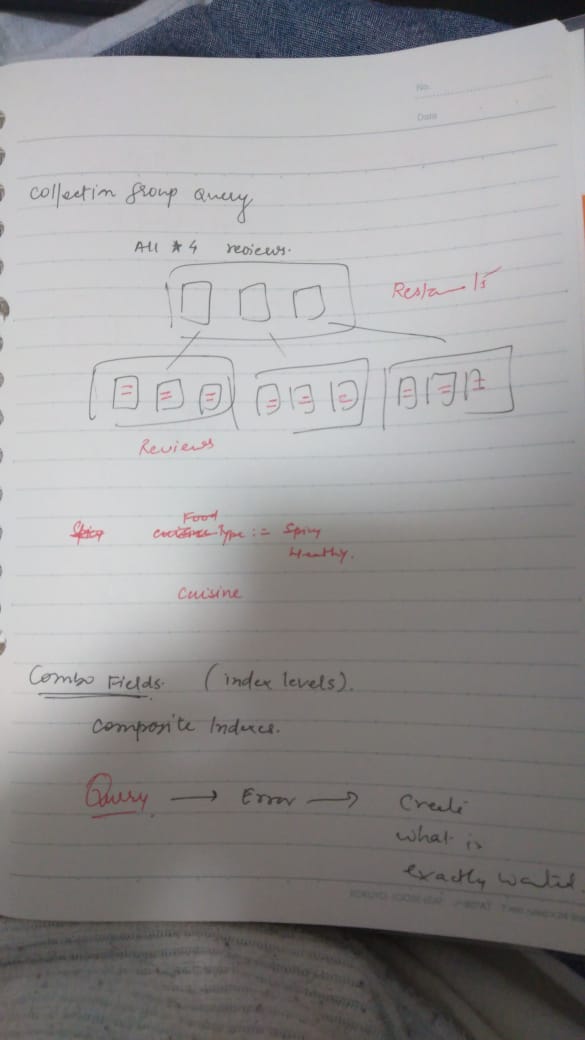 No.
Date
Collectin Group Query
All * 4 reviews.
Reviews
Spicy
Food
Cuisine Type := Spicy
Healthy.
Cuisine
Combo Fields. (index levels).
Composite Indexes.
Query → Error → Create
what is
exactly wanted.